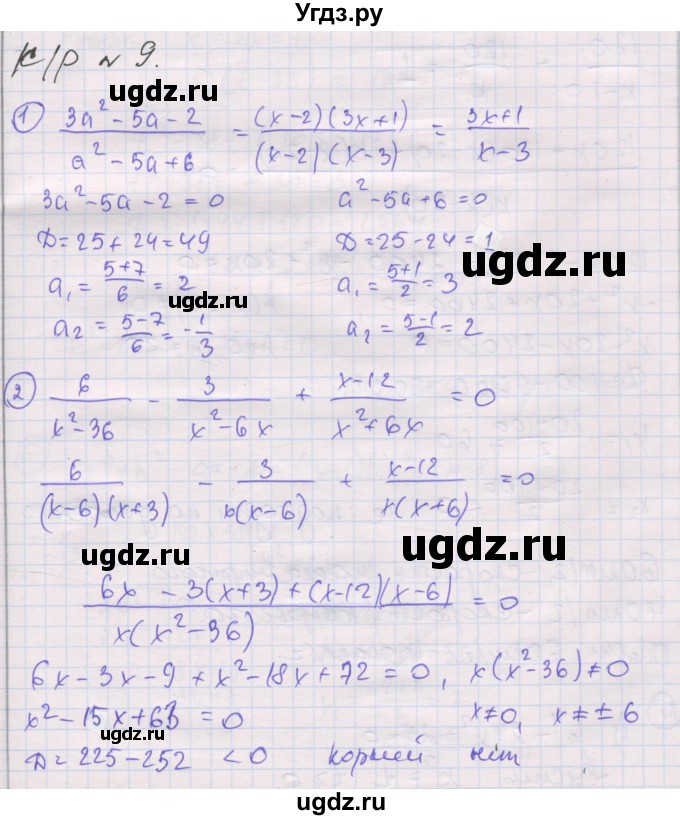 Угдз.ру
К/р №9.
① (3a² - 5a - 2)/(a² - 5a + 6) = ((x-2)(3x+1))/((x-2)(x-3)) = (3x+1)/(x-3)
ugdz.ru
3a² - 5a - 2 = 0    a² - 5a + 6 = 0
Д = 25 + 24 = 49    Д = 25 - 24 = 1
ugdz.ru
a₁ = (5+7)/6 = 2    a₁ = (5+1)/2 = 3
ugdz.ru
a₂ = (5-7)/6 = -1/3    a₂ = (5-1)/2 = 2
② 6/(x² - 36) - 3/(x² - 6x) + (x-12)/(x² + 6x) = 0
6/((x-6)(x+3)) - 3/(x(x-6)) + (x-12)/(x(x+6)) = 0
ugdz.ru
ugdz.ru
(6x - 3(x+3) + (x-12)(x-6))/(x(x² - 36)) = 0
6x - 3x - 9 + x² - 18x + 72 = 0, x(x² - 36) ≠ 0
x² - 15x + 63 = 0    x ≠ 0, x ≠ ± 6
ugdz.ru
Д = 225 - 252 < 0 корней нет
ugdz.ru
ugdz.ru